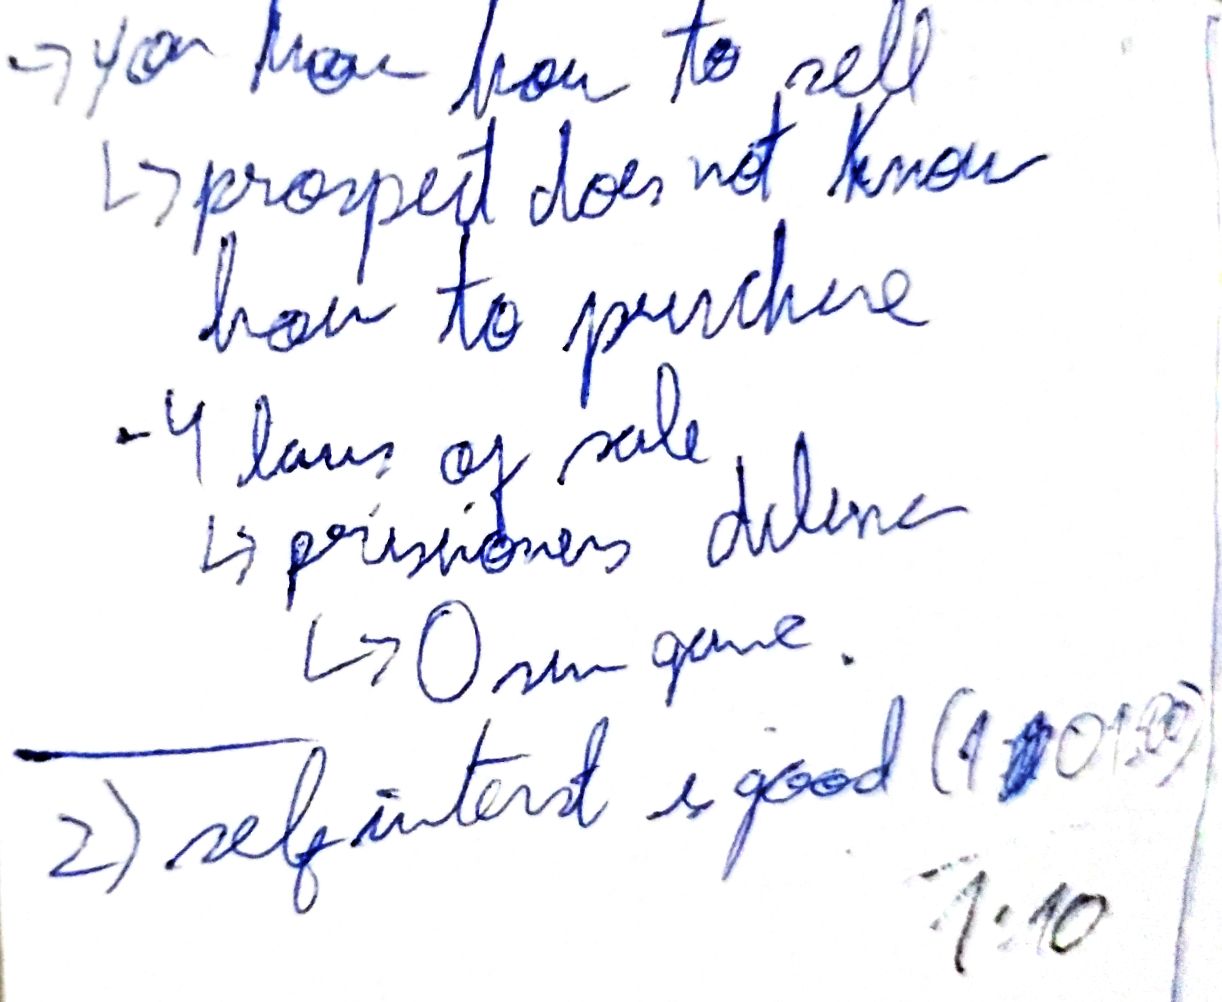 → you know how to sell
↳ prospect does not know
how to purchase
- 4 laws of sale
↳ prisioners dilema
↳ 0 sum game.
2) self interest is good (1
1:10